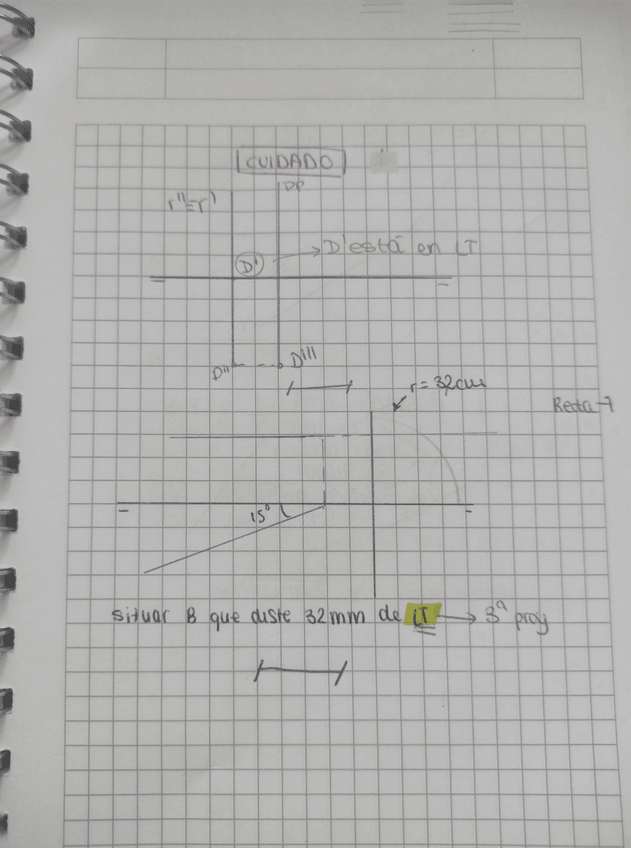 CUIDADO
DP
r''=r'
D' → D' está en LT
D'' D'''
r = 3,2cm
Recta →
15°
situar B que diste 32mm de LT → 3ª proy